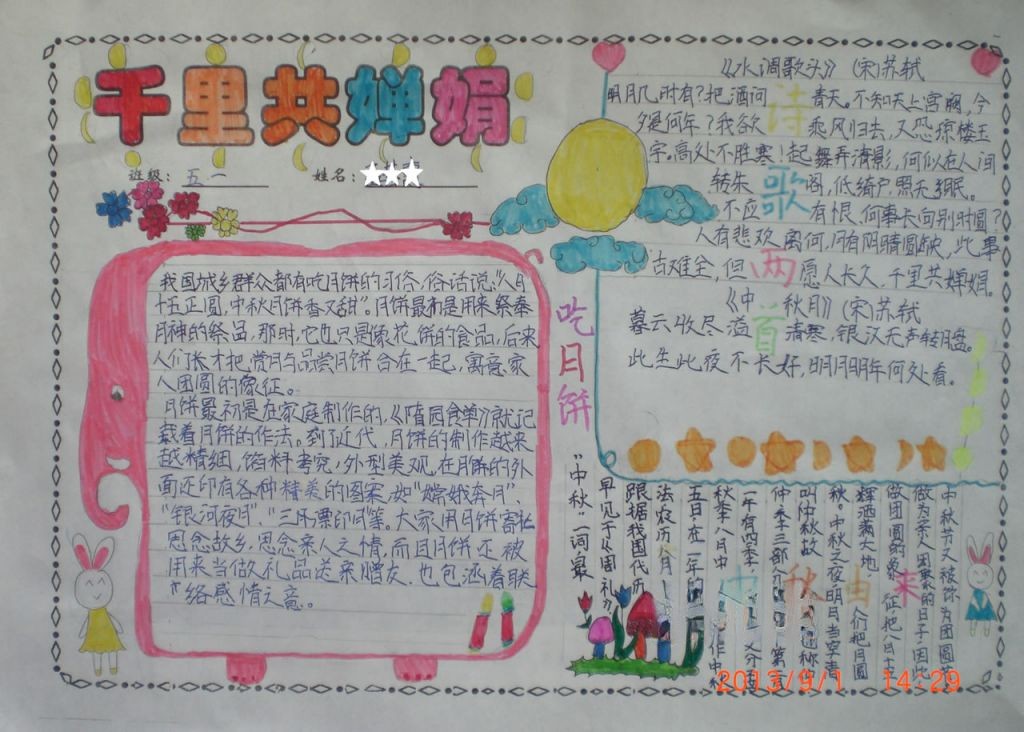 千里共婵娟
班级：五一 姓名：
我国城乡群众都有吃月饼的习俗，俗话说：“八月
十五正圆，中秋月饼香又甜”。月饼最初是用来祭奉
月神的祭品，那时，它也只是像花饼的食品，后来
人们张才把赏月与品尝月饼合在一起，寓意家
人团圆的像征。
月饼最初是在家庭制作的，《隋园食单》就记
载着月饼的作法。到了近代，月饼的制作越来
越精细，馅料考究，外型美观，在月饼的外
面还印有各种精美的图案，如“嫦娥奔月”、
“银河夜月”、“三潭票印月”等。大家用月饼寄托
思念故乡，思念亲人之情，而且月饼还被
用来当做礼品送亲赠友，也包涵着联
络感情之意。
吃月饼
《水调歌头》（宋）苏轼
明月几时有？把酒问青天。不知天上宫阙，今
夕是何年？我欲乘风归去，又恐琼楼玉
宇。高处不胜寒！起舞弄清影，何似在人间
转朱阁，低绮户照无眠。
不应有恨，何事长向别时圆？
人有悲欢离何，月有阴晴圆缺，此事
古难全，但愿人长久，千里共婵娟。
诗歌两首
《中秋月》（宋）苏轼
暮云收尽溢清寒，银汉无声转月盘。
此生此夜不长好，明月明年何处看。
中秋由来
“中秋”一词最
早见于《周礼》，
跟据我国代历
法，农历八月
五日，在一年的
秋季八月中
一年有四季，
仲季三部分，
叫仲秋故
秋。中秋之夜，明月当空，青
辉洒满大地，人们把月圆
做团圆的象征，把八月十五
做为亲人团聚的日子，因此
中秋节又被称为团圆节
2013/9/1 14:29